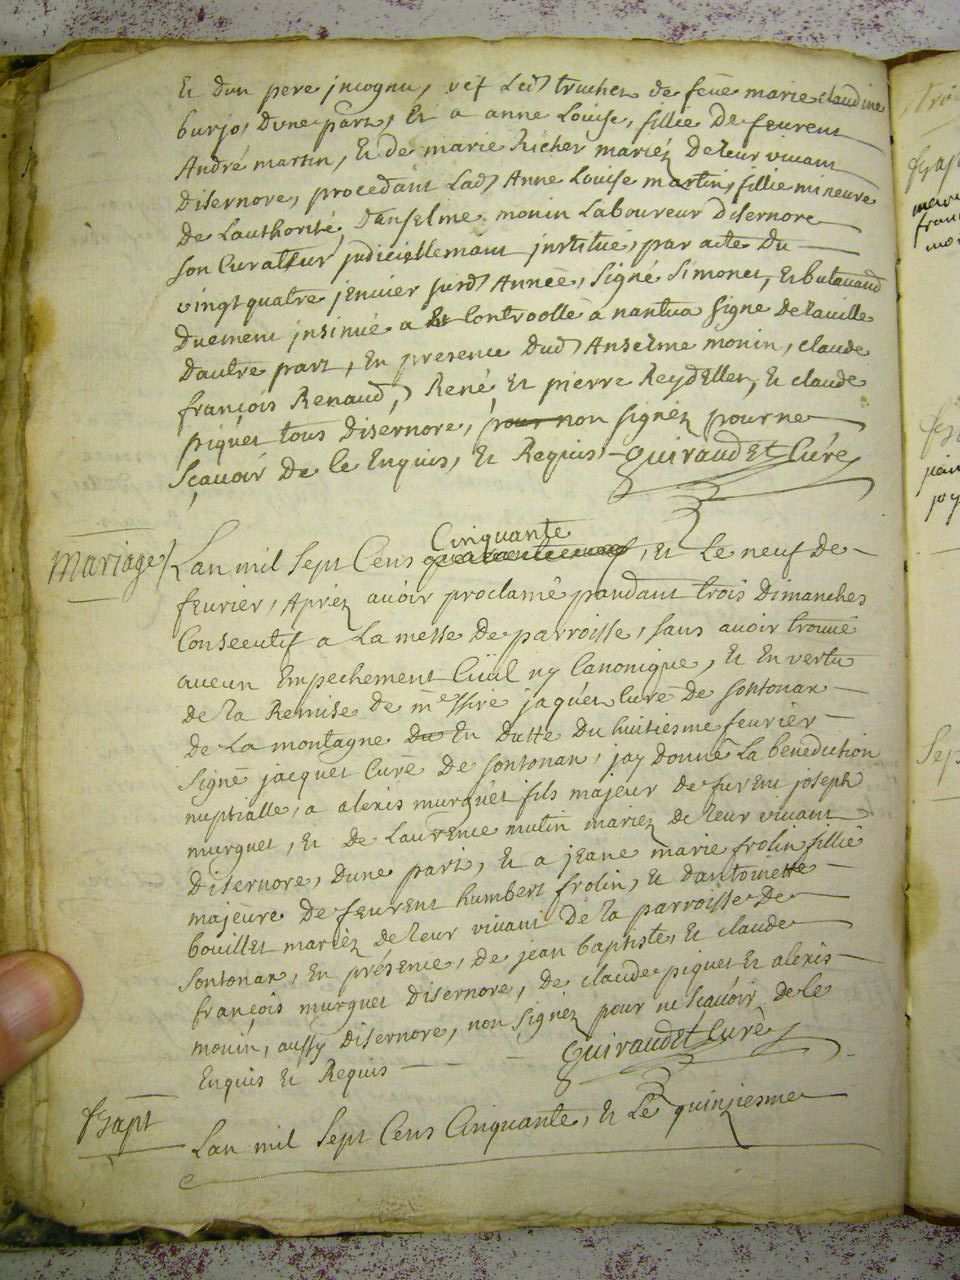 Et dun pere jncognu, vef Led truchet de feüe marie claudine
burjo, dune part, Et a anne Louise, fillie de feurent
André martin, Et de marie Richer mariéz de leur vivant
disernore, procedant Lad Anne Louise martin, fillie mineure
de Lauthorité, danselme monin Laboureur disernore
son Curateur judiciellemant jnstitué, par acte du
vingt quatre jenvier susd Année, signé Simonet, Et butavand
duement jnsinué a Controollé a nantua signé delaville
dautre part, En presence dud Anselme monin, claude
françois Renaud, René, Et pierre Reydellet, Et claude
piquet tous disernore, pour non signéz pour ne
sçavoir de ce Enquis, Et Requis Guiraudet Curé
Mariage
Cinquante
Lan mil Sept Cens , Et Le neuf de
feurier, Apréz avoir proclamé pandant trois dimanches
Consecutif a La messe de parroisse, sans avoir trouvé
aucun Empechement Ciuil ny Canonique, Et En vertu
de la Remise de messire jaquet curé de sontonax
de La montagne du En datte du huitiesme feurier
signé jacquet Curé de sontonax, jay donné La benediction
nuptialle, a alexis murguet fils majeur de furent joseph
murguet, Et de Laurence mutin mariez de leur vivant
disernore, dune part, Et a jeane marie frolin fillie
majeure de feurent humbert frolin, Et dantoinette
bouillet mariéz de leur vivant de la parroisse de
sontonax, En présence, de jean baptiste, Et claude
françois murguet disernore, de claude piquet Et alexis
monin, aussy disernore, non signéz pour ne sçavoir de ce
Enquis Et Requis Guiraudet Curé
Bapt
Lan mil Sept Cens Cinquante, Et Le quinziesme